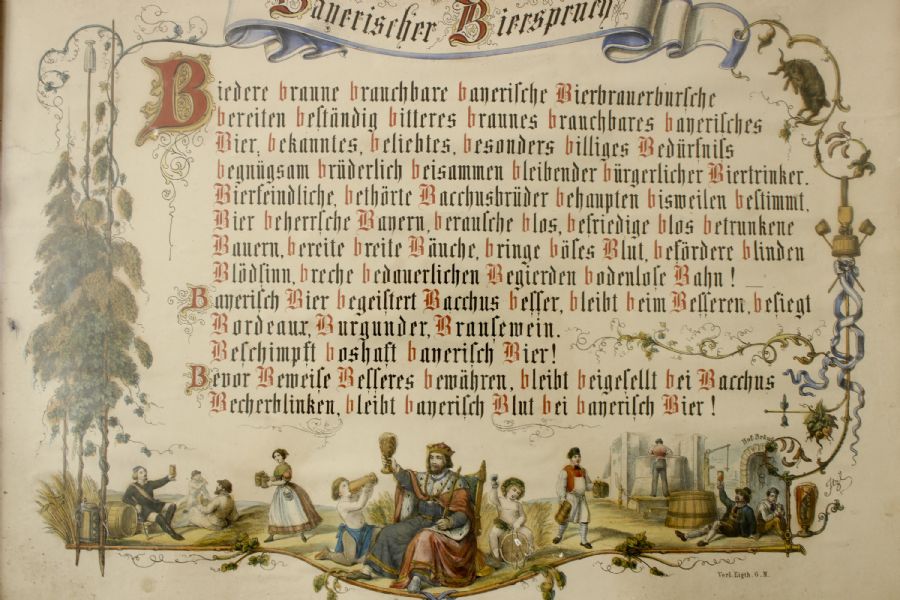 Bayerischer Bierspruch
Biedere braune brauchbare bayerische Bierbrauerbursche
bereiten beständig bitteres braunes brauchbares bayerisches
Bier, bekanntes, beliebtes, besonders billiges Bedürfniss
begnügsam brüderlich beisammen bleibender bürgerlicher Biertrinker.
Bierfeindliche, bethörte Bacchusbrüder behaupten bisweilen bestimmt,
Bier beherrsche Bayern, berausche blos, befriedige blos betrunkene
Bauern, bereite breite Bäuche, bringe böses Blut, befördere blinden
Blödsinn, breche bedauerlichen Begierden bodenlose Bahn!
Bayerisch Bier begeistert Bacchus besser, bleibt beim Besseren, besiegt
Bordeaux, Burgunder, Brausewein.
Beschimpft boshaft bayerisch Bier!
Bevor Beweise Besseres bewähren, bleibt beigesellt bei Bacchus
Becherblinken, bleibt bayerisch Blut bei bayerisch Bier!
Verl. Eigth. G. N.